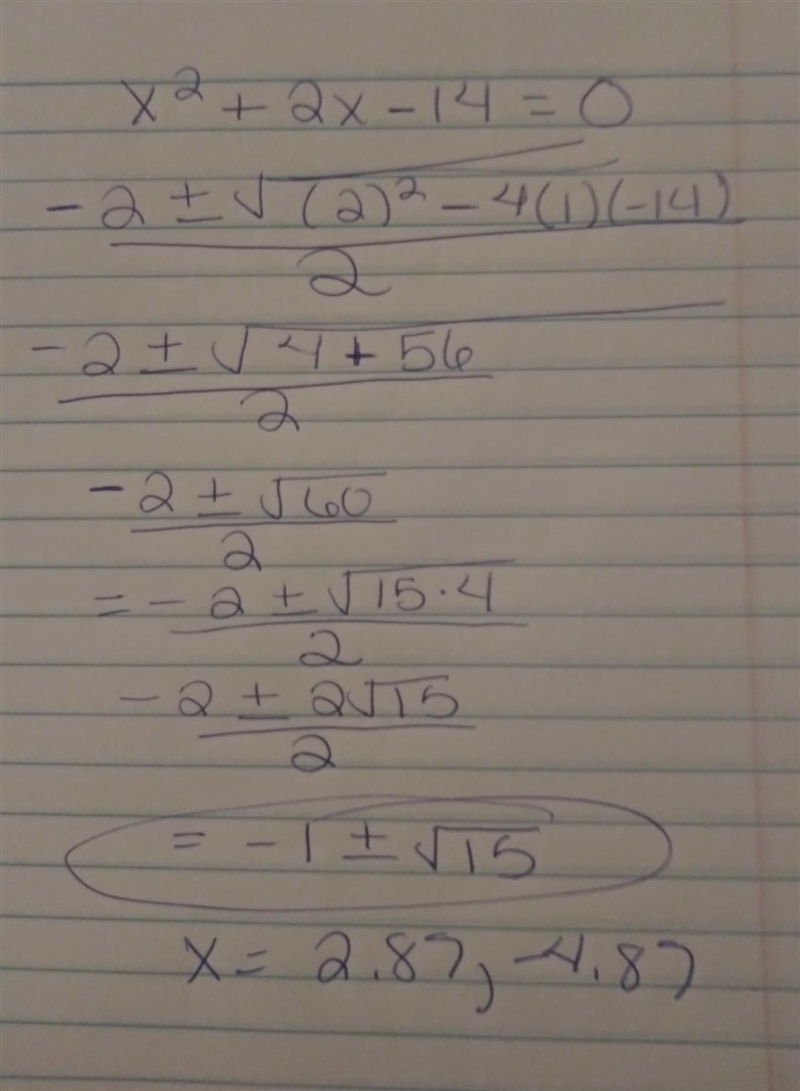 x² + 2x - 14 = 0
-2 ± √(2)² - 4(1)(-14)
2
-2 ± √4 + 56
2
-2 ± √60
2
= -2 ± √15·4
2
-2 ± 2√15
2
= -1 ± √15
x = 2.87, -4.87